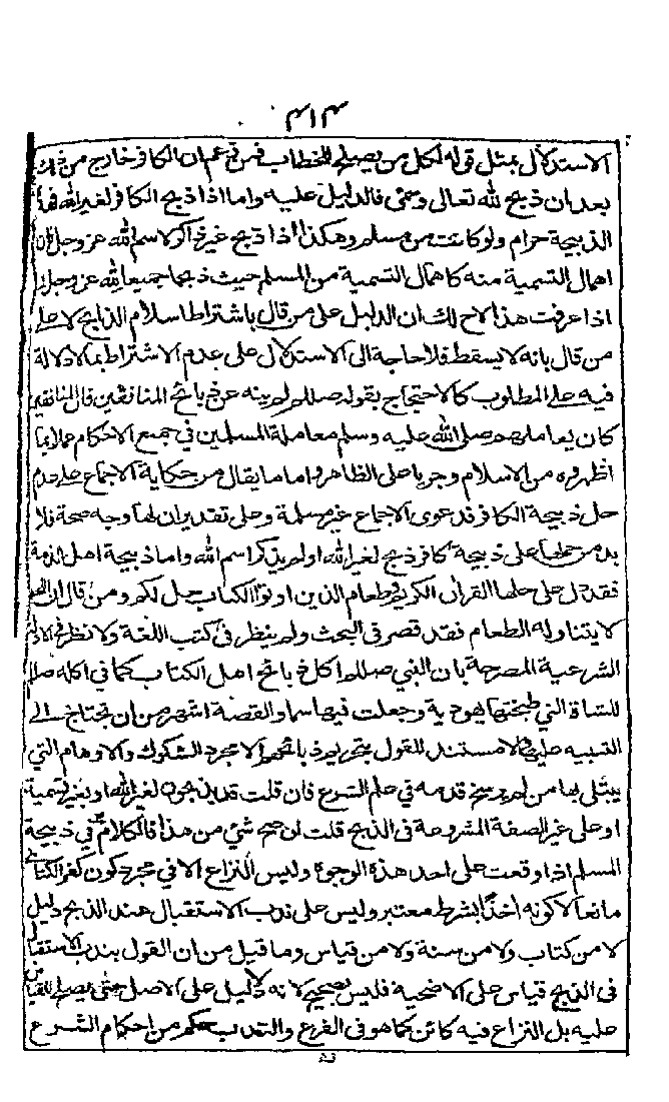 ٣١٣
الاستدلال بمثل قوله لكل من يصلح للخطاب فمن زعم ان الكافر خارج من ذلك
بعد ان ذبح لله تعالى وسمى فالدليل عليه واما اذا ذبح الكافر لغير الله فهذه
الذبيحة حرام ولو كانت من مسلم وهكذا اذا ذبح غير ذاكر لاسم الله عز وجل فان
اهمال التسمية منه كاهمال التسمية من المسلم حيث ذبحا جميعا لله عز وجل
اذا عرفت هذا لاح لك ان الدليل على من قال باشتراط اسلام الذابح لا على
من قال بانه لا يسقط فلا حاجة الى الاستدلال على عدم الاشتراط بما لا دلالة
فيه على المطلوب كالاحتجاج بقوله صللم لم ينه عن ذبائح المنافقين قال المنافقين
كان يعاملهم صلى الله عليه وسلم معاملة المسلمين في جميع الاحكام عملا بما
اظهروه من الاسلام وجريا على الظاهر واما ما يقال من حكاية الاجماع على عدم
حل ذبيحة الكافر فدعوى الاجماع غير مسلمة وعلى تقدير ان لها وجه صحة فلا
بد من حملها على ذبيحة كافر ذبح لغير الله او لم يذكر اسم الله واما ذبيحة اهل الذمة
فقد دل على حلها القران الكريم وطعام الذين اوتوا الكتاب حل لكم ومن قال ان اللحم
لا يتناوله الطعام فقد قصر في البحث ولم ينظر في كتب اللغة ولا نظر في الادلة
الشرعية المصرحة بان النبي صللم اكل ذبائح اهل الكتاب كما في اكله صللم
للشاة التي طبختها يهودية وجعلت فيها سما والقصة اشهر من ان تحتاج الى
التنبيه عليها ولا مستند للقول بتحريم ذبائحهم الا مجرد الشكوك والاوهام التي
يبتلى بها من لم يرسخ قدمه في علم الشرع فان قلت قد يذبحون لغير الله او بغير تسمية
او على غير الصفة المشروعة في الذبح قلت ان صح شيء من هذا فالكلام في ذبيحة
المسلم اذا وقعت على احد هذه الوجوه وليس النزاع الا في مجرد كون كفر الكتابي
مانعا لا كونه اخذ بشرط معتبر وليس على ندب الاستقبال عند الذبح دليل
لا من كتاب ولا من سنة ولا من قياس وما قيل من ان القول بندب الاستقبال
في الذبح قياس على الاضحية فليس بصحيح لانه لا دليل على الاصل حتى يصلح للقياس
عليه بل النزاع فيه كائن كما هو في الفرع والندب حكم من احكام الشرع